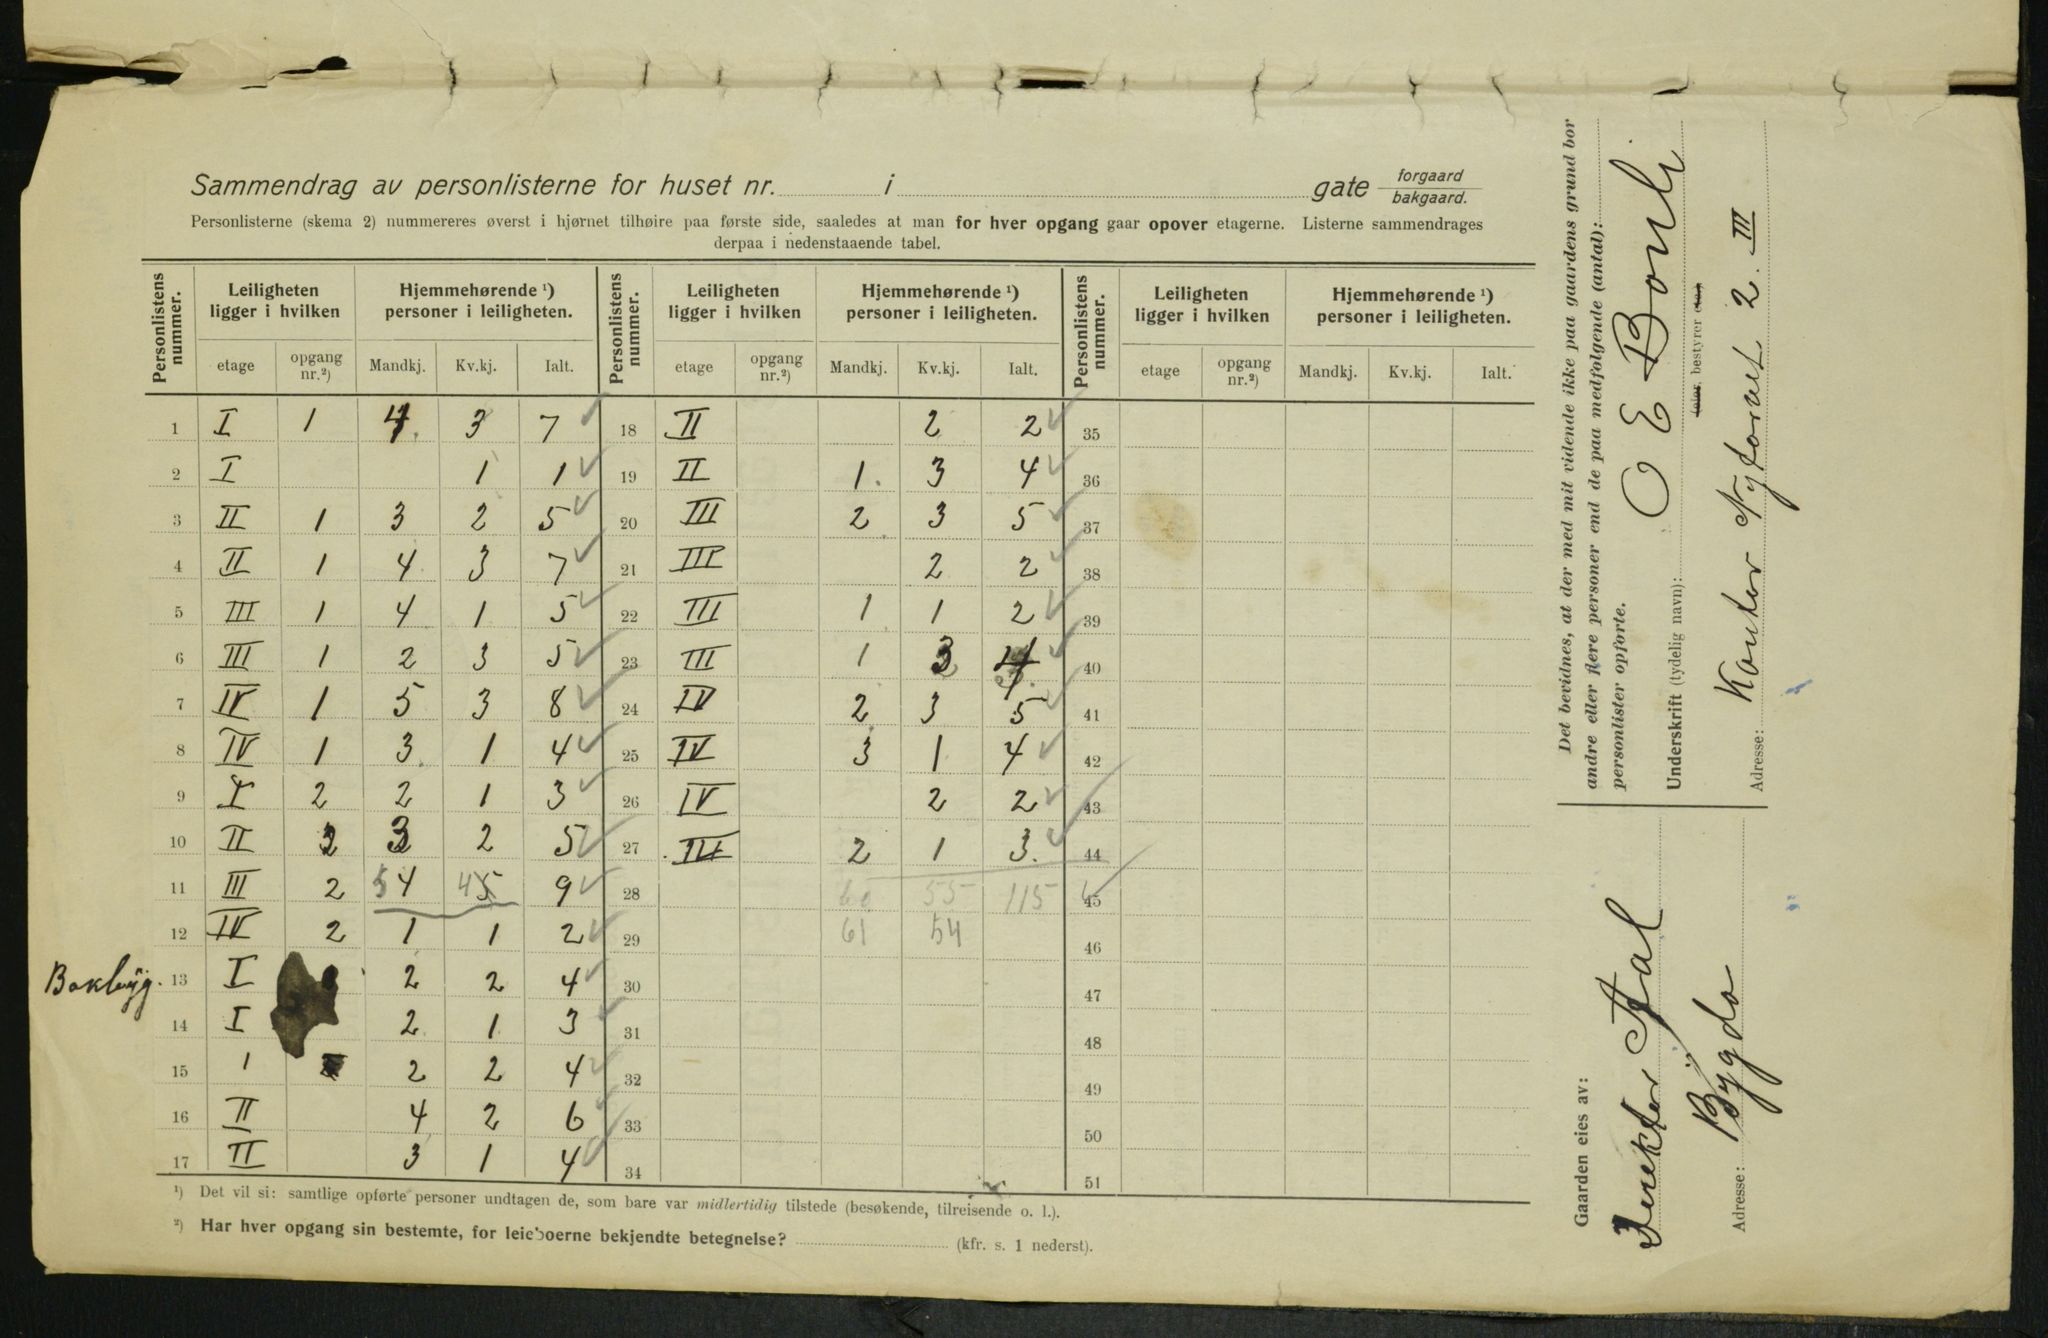 Sammendrag av personlisterne for huset nr. i gate forgaard bakgaard.
Personlisterne (skema 2) nummereres øverst i hjørnet tilhøire paa første side, saaledes at man for hver opgang gaar opover etagerne. Listerne sammendrages
derpaa i nedenstaaende tabel.
Personlistens nummer. Leiligheten ligger i hvilken Hjemmehørende ¹) personer i leiligheten. Personlistens nummer. Leiligheten ligger i hvilken Hjemmehørende ¹) personer i leiligheten. Personlistens nummer. Leiligheten ligger i hvilken Hjemmehørende ¹) personer i leiligheten.
etage opgang nr.²) Mandkj. Kv.kj. Ialt. etage opgang nr.²) Mandkj. Kv.kj. Ialt. etage opgang nr.²) Mandkj. Kv.kj. Ialt.
1 I 1 4 3 7 18 II 2 2 35
2 I 1 1 19 II 1 3 4 36
3 II 1 3 2 5 20 III 2 3 5 37
4 II 1 4 3 7 21 III 2 2 38
5 III 1 4 1 5 22 III 1 1 2 39
6 III 1 2 3 5 23 III 1 3 4 40
7 IV 1 5 3 8 24 IV 2 3 5 41
8 IV 1 3 1 4 25 IV 3 1 4 42
9 I 2 2 1 3 26 IV 2 2 43
10 II 2 3 2 5 27 IV 2 1 3 44
11 III 2 54 45 9 28 60 55 115 45
12 IV 2 1 1 2 29 61 54 46
Bakbyg. 13 I 2 2 4 30 47
14 I 2 1 3 31 48
15 1 2 2 4 32 49
16 II 4 2 6 33 50
17 II 3 1 4 34 51
¹) Det vil si: samtlige opførte personer undtagen de, som bare var midlertidig tilstede (besøkende, tilreisende o. l.).
²) Har hver opgang sin bestemte, for leieboerne bekjendte betegnelse? (kfr. s. 1 nederst).
Det bevidnes, at der med mit vidende ikke paa gaardens grund bor
andre eller flere personer end de paa medfølgende (antal):
personlister opførte.
Underskrift (tydelig navn): O E Bonli
(eier, bestyrer etc.)
Adresse: Kontor Nytorvet 2. III
Gaarden eies av:
Direktør Aal
Adresse: Bygdø